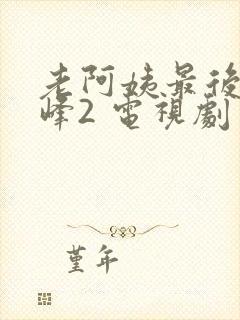 老阿姨最後
峰2 電視劇
堇年